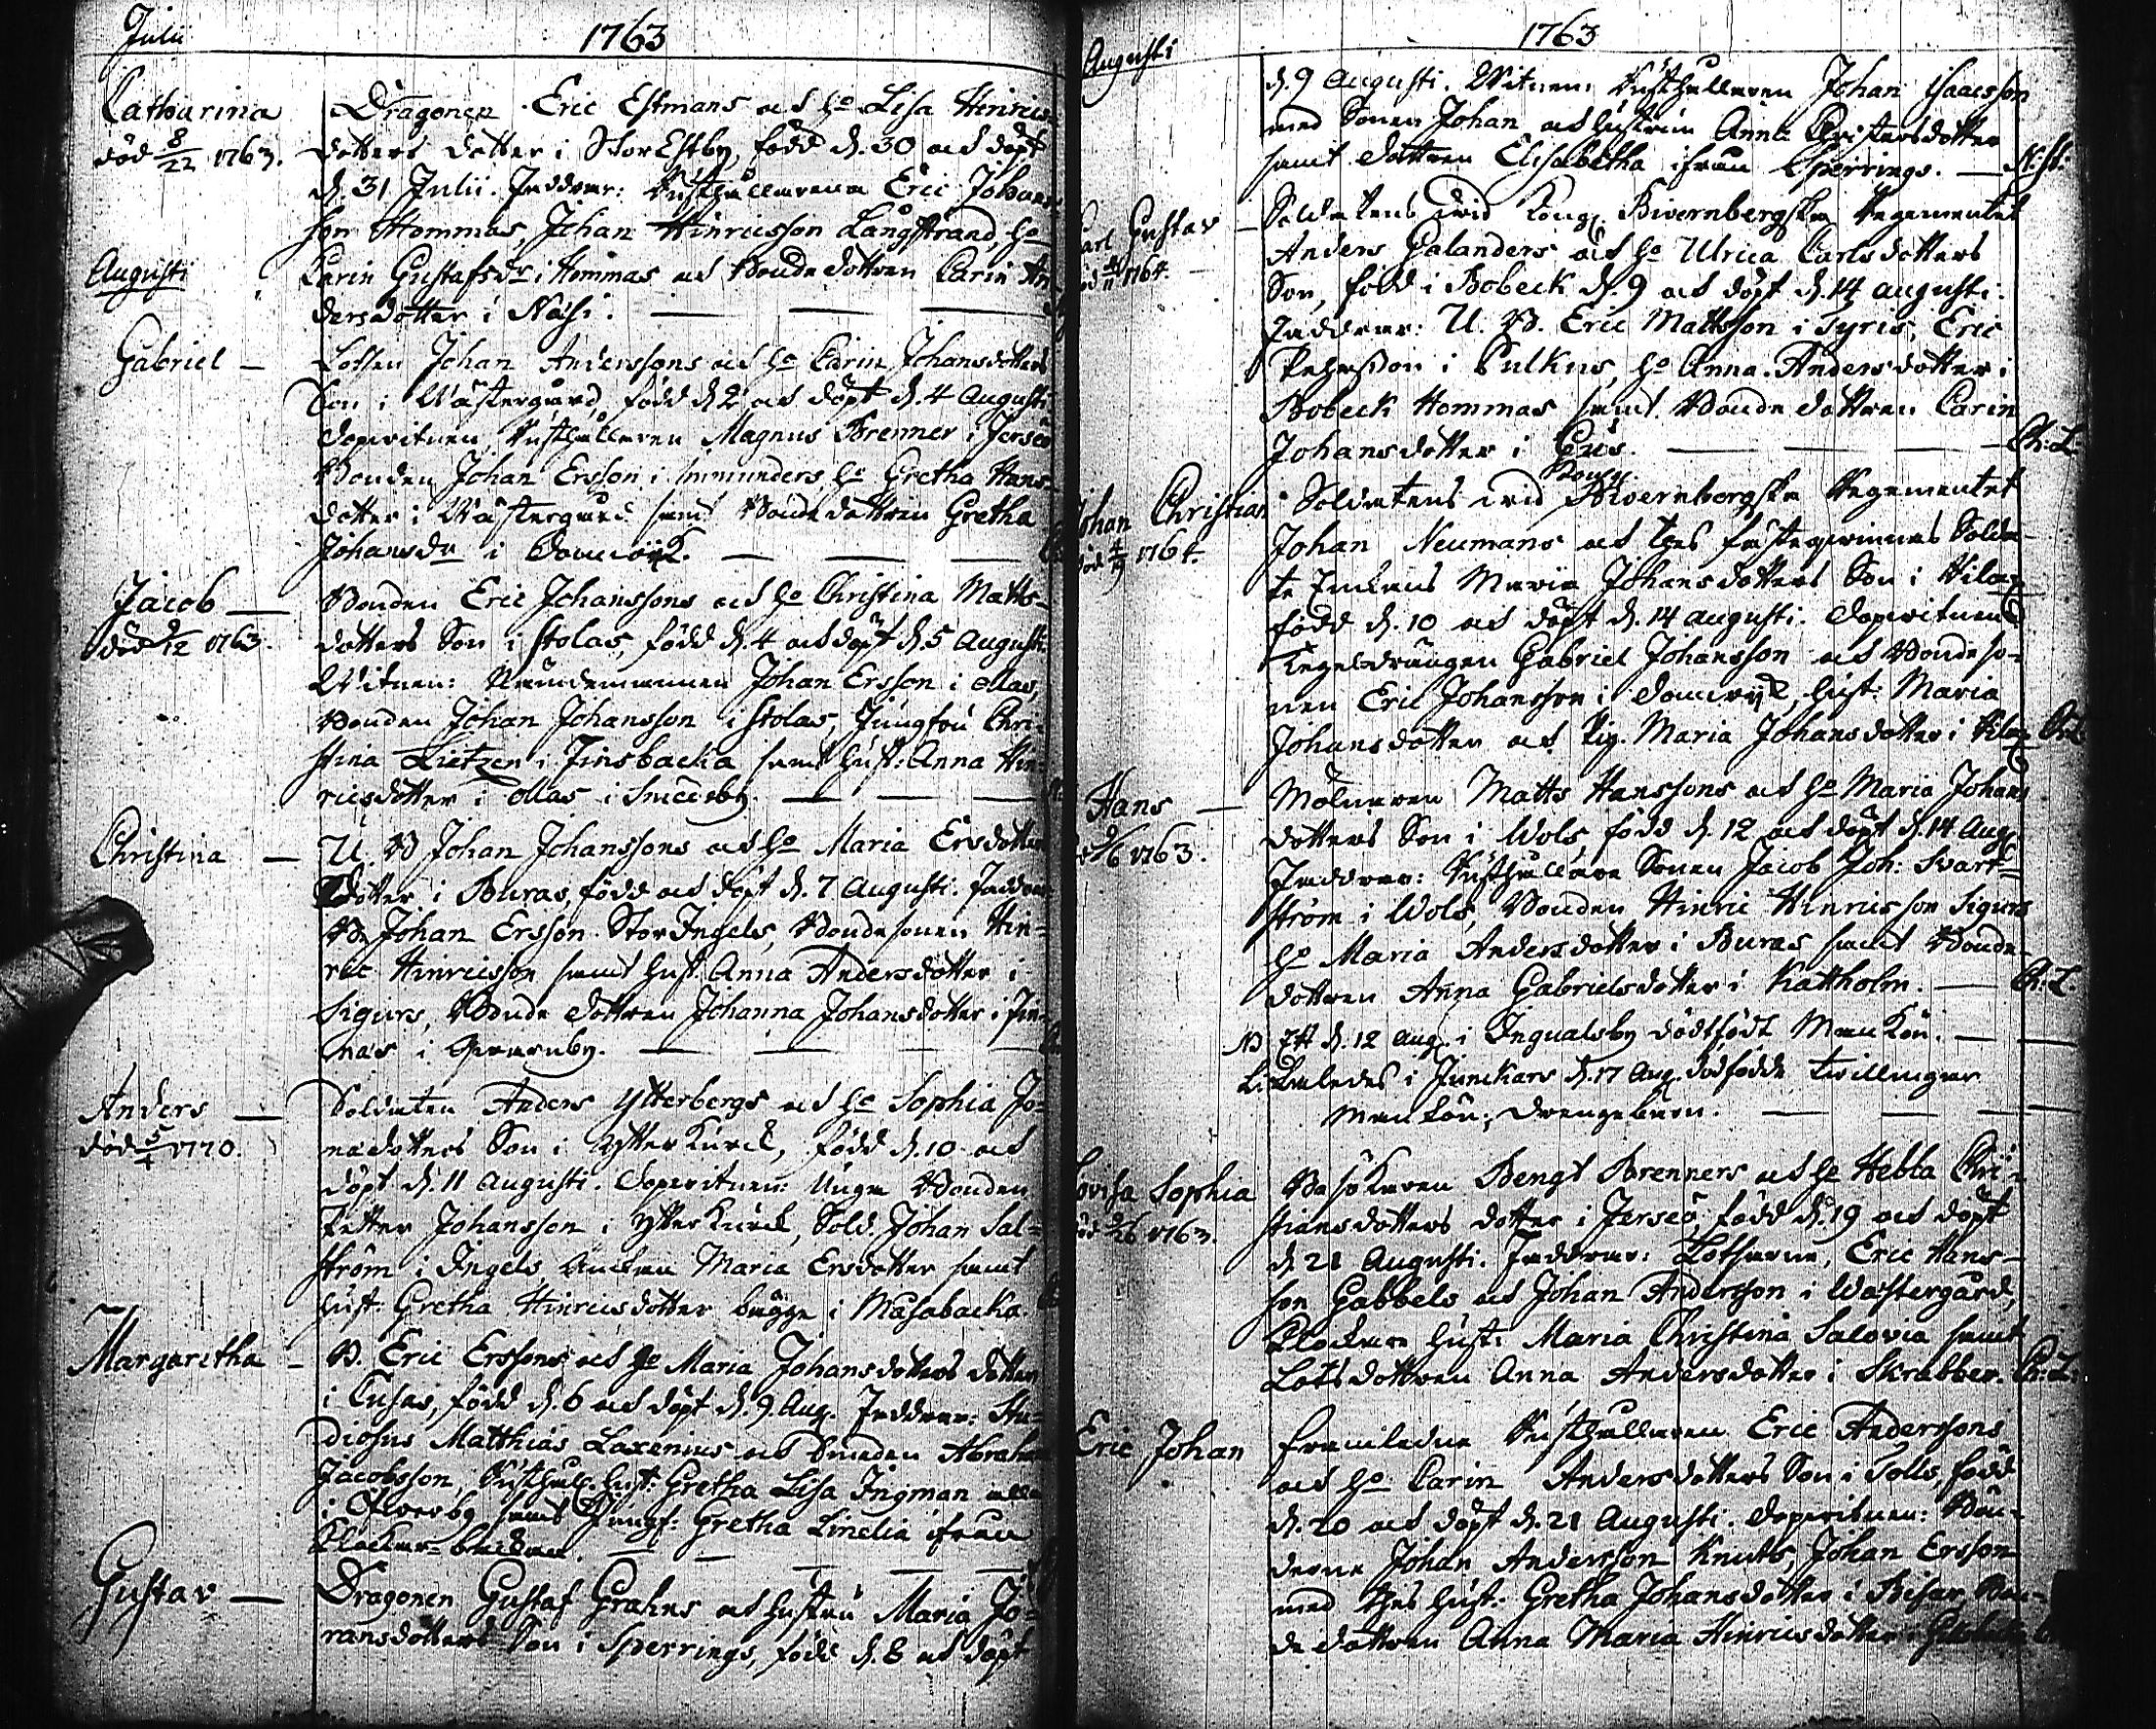 Julii
1763
Catharina
död 8/22 1763.
Dragonen Eric Estmans och ho Lisa Hinrics-
dotters dotter i StorEstby, född d. 30 och döpt
d. 31 Julii. Faddrar: Rusthållarena Eric Johans-
son Hommas, Johan Hinricsson Långstrand, ho
Augusti
Carin Gustafsdr i Hommas och Bondedottren Carin An-
dersdotter i Näsi.
Gabriel
Lotsen Johan Anderssons och ho Carin Johansdotters
Son i Wästergård, född d. 2 och döpt d. 4 Augusti.
Dopwitnen, Rusthållaren Magnus Brenner i Jerseö
Bonden Johan Ersson i Simunders, ho Gretha Hans-
dotter i Wästergård samt Bondedottren Gretha
Johansdr i
Jacob
död 9/12 1763.
Bonden Eric Johanssons och ho Christina Matts-
dotters Son i Stolas, född d. 4 och döpt d. 5 Augusti.
Witnen: Nämdemannen Johan Ersson i Mas,
Bonden Johan Johansson i Stolas, Jungfru Chri-
stina Lietzen i Finsbacka samt Hust: Anna Hin-
ricsdotter i Mas i Smedsby.
Christina
U. B Johan Johanssons och ho Maria Ersdotters
Dotter i Buras, född och döpt d. 7 Augusti. Faddrar
B. Johan Ersson StorIngels, Bondesonen Hin-
ric Hinricsson samt Hust. Anna Andersdotter i
Sigurs, Bonde dottren Johanna Johansdotter i Fin-
nas i
Anders
död 5/4 1770.
Soldaten Anders Ytterbergs och ho Sophia Jo-
nædotters Son i Ytterkurck, född d. 10 och
döpt d. 11 Augusti. Dopwitnen: Unga Bonden
Petter Johansson i Ytterkurck, Sold. Johan Sal-
ström i Ingels, Enckan Maria Ersdotter samt
Hust: Gretha Hinricsdotter bägge i Masabacka.
Margaretha
B. Eric Erssons och ho Maria Johansdotters dotter
i Cusas, född d. 6 och döpt d. 9 Aug. Faddrar: Stu-
diosus Matthias Laxenius och Smeden Abraham
Jacobsson, Rusthåll. Hust: Gretha Lisa Ingman alla
i Ölwarsby samt Jungf: Gretha Linelia ifrån
Klockar-backan.
Gustav
Dragonen Gustaf Grahns och Hustru Maria Jo-
ransdotters Son i Sperrings, född d. 8 och döpt
Augusti
1763
d. 9 Augusti. Witnen: Rusthållaren Johan Isaacsson
med Sonen Johan och Hustrun Anna Christersdotter
samt dottren Elisabetha ifrån Sperrings.
Carl Gustav
1764.
Soldatens wid Kongl. Biwernbergska Regementet
Anders Galanders och ho Ulrica Carlsdotters
Son, född i Bobeck d. 9 och döpt d. 14 Augusti.
Faddrar: U. B. Eric Mattsson i Syris, Eric
Pehrsson i Pulkus, ho Anna Andersdotter i
Bobeck Hommas samt Bonde dottren Carin
Johansdotter i Gus.
Ch: L
Johan Christian
död 4/9 1764.
Soldatens wid Kongl. Biwernbergska Regementet
Johan Neumans och thes fästeqwinnas Solda-
te Enckans Maria Johansdotters Son i Hila
född d. 10 och döpt d. 14 Augusti. Dopwitnen
Tegeldrängen Gabriel Johansson och Bondeso-
nen Eric Johansson i Damwijk, Hust: Maria
Johansdotter och Pig. Maria Johansdotter i
Hans
1763.
Mölnaren Matts Hanssons och ho Maria Johans
dotters Son i Wols, född d. 12 och döpt d. 14 Aug.
Faddrar: Rusthållare Sonen Jacob Joh: Svart-
ström i Wols, Bonden Hinric Hinricsson Sigurs
ho Maria Andersdotter i Buras samt Bonde-
dottren Anna Gabrielsdotter i Kattholm.
Ch: L.
NB Ett d. 12 Aug. i Ingvalsby dödfödt Mankön.
Likaledes i Junckars d. 17 Aug. dödfödde twillingar
Mankön, drengebarn.
Lovisa Sophia
1763.
Besökaren Bengt Brenners och ho Hebla Chri-
stiansdotters dotter i Jerseö, född d. 19 och döpt
d. 21 Augusti. Faddrar: Lotsarne, Eric Hans-
son Gabbels och Johan Andersson i Wästergård,
Klockare Hust: Maria Christina Salovia samt
Lotsdottren Anna Andersdotter i Skrabber.
Ch: L:
Eric Johan
Framledne Rusthållaren Eric Anderssons
och ho Carin Andersdotters Son i Tolls, född
d. 20 och döpt d. 21 Augusti. Dopwitnen: Bön-
derne Johan Andersson Knuts, Johan Ersson
med thes Hust: Gretha Johansdotter i Bisar, Bon-
de dottren Anna Maria Hinricsdotter